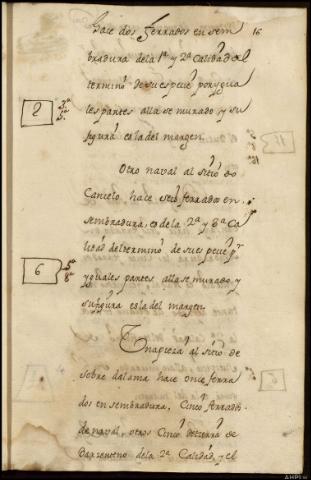 Hace dos ferrados en sem 16
bradura de la 1ª y 2ª Calidad del
termino de su especie por ygua
2 les partes allase murado y su
figura es la del margen.
Otro naval al sitio do
Cancelo hace seis ferrados en
sembradura, es de la 2ª y 3ª Ca
lidad del termino de su especie pr
6 yguales partes allase murado, y
su figura es la del margen
Una pieza al sitio de
sobre dalama hace once ferra
dos en sembradura, Cinco ferrados
de naval, otros Cinco de tierra de
Barbenteno de la 2ª Calidad, y el
AHPL